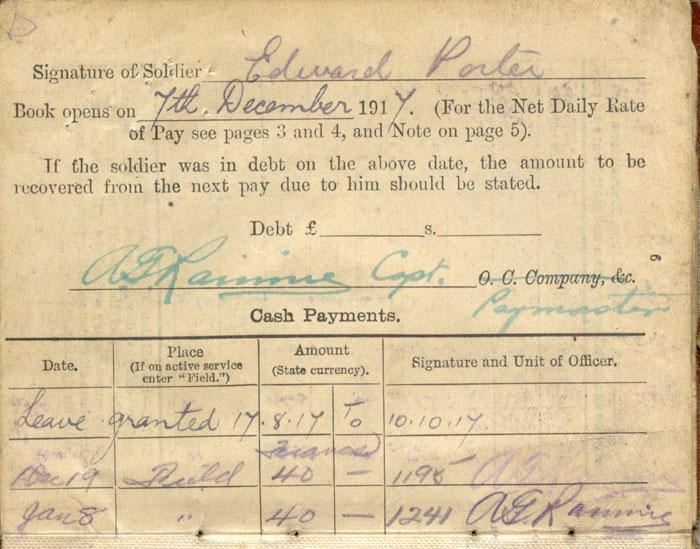 Signature of Soldier Edward Porter
Book opens on 7th December 1917. (For the Net Daily Rate
of Pay see pages 3 and 4, and Note on page 5).
If the soldier was in debt on the above date, the amount to be
recovered from the next pay due to him should be stated.
Debt £ s.
Capt. O. C. Company, &c.
Paymaster
6
Cash Payments.
Date. Place (If on active service enter "Field.") Amount (State currency). Signature and Unit of Officer.
Leave granted 17.8.17 To 10.10.17
Francs
Dec 19 Field 40 — 1195
Jan 8 " 40 — 1241